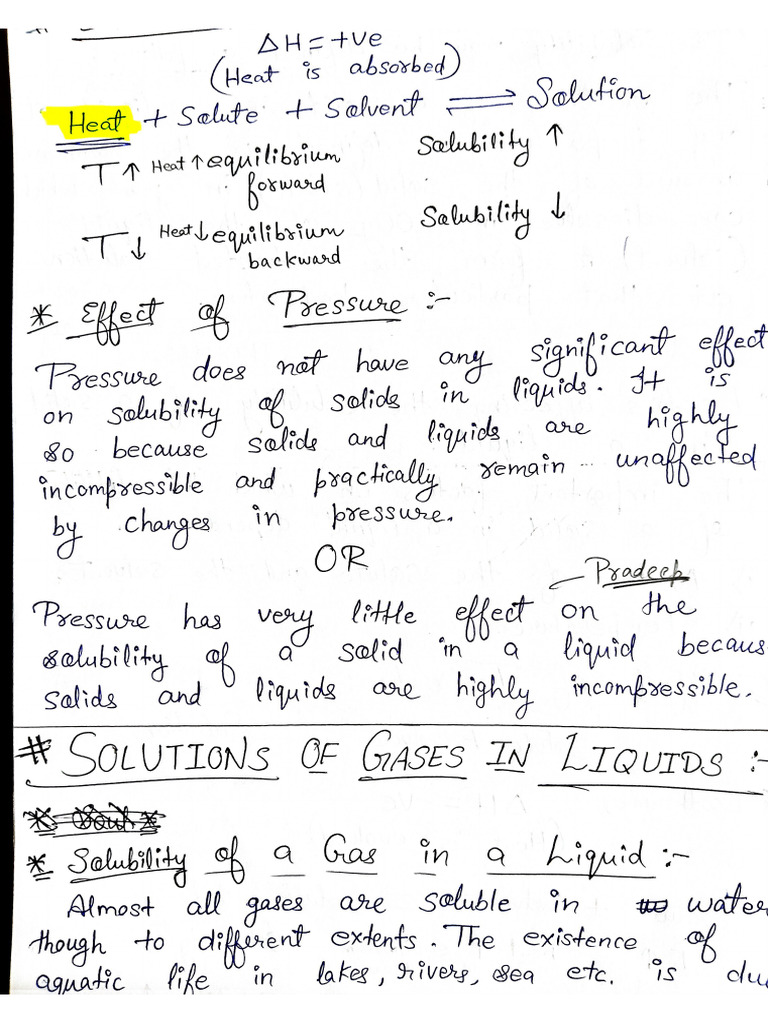 ΔH = +ve
(Heat is absorbed)
Heat + Solute + Solvent ⇌ Solution
T↑ Heat↑ equilibrium forward Solubility ↑
T↓ Heat↓ equilibrium backward Solubility ↓
* Effect of Pressure :-
Pressure does not have any significant effect
on solubility of solids in liquids. It is
so because solids and liquids are highly
incompressible and practically remain unaffected
by changes in pressure.
OR
Pradeep
Pressure has very little effect on the
solubility of a solid in a liquid becaus
solids and liquids are highly incompressible.
# SOLUTIONS OF GASES IN LIQUIDS :-
* Solubility of a Gas in a Liquid :-
Almost all gases are soluble in water
though to different extents. The existence of
aquatic life in lakes, rivers, sea etc. is du